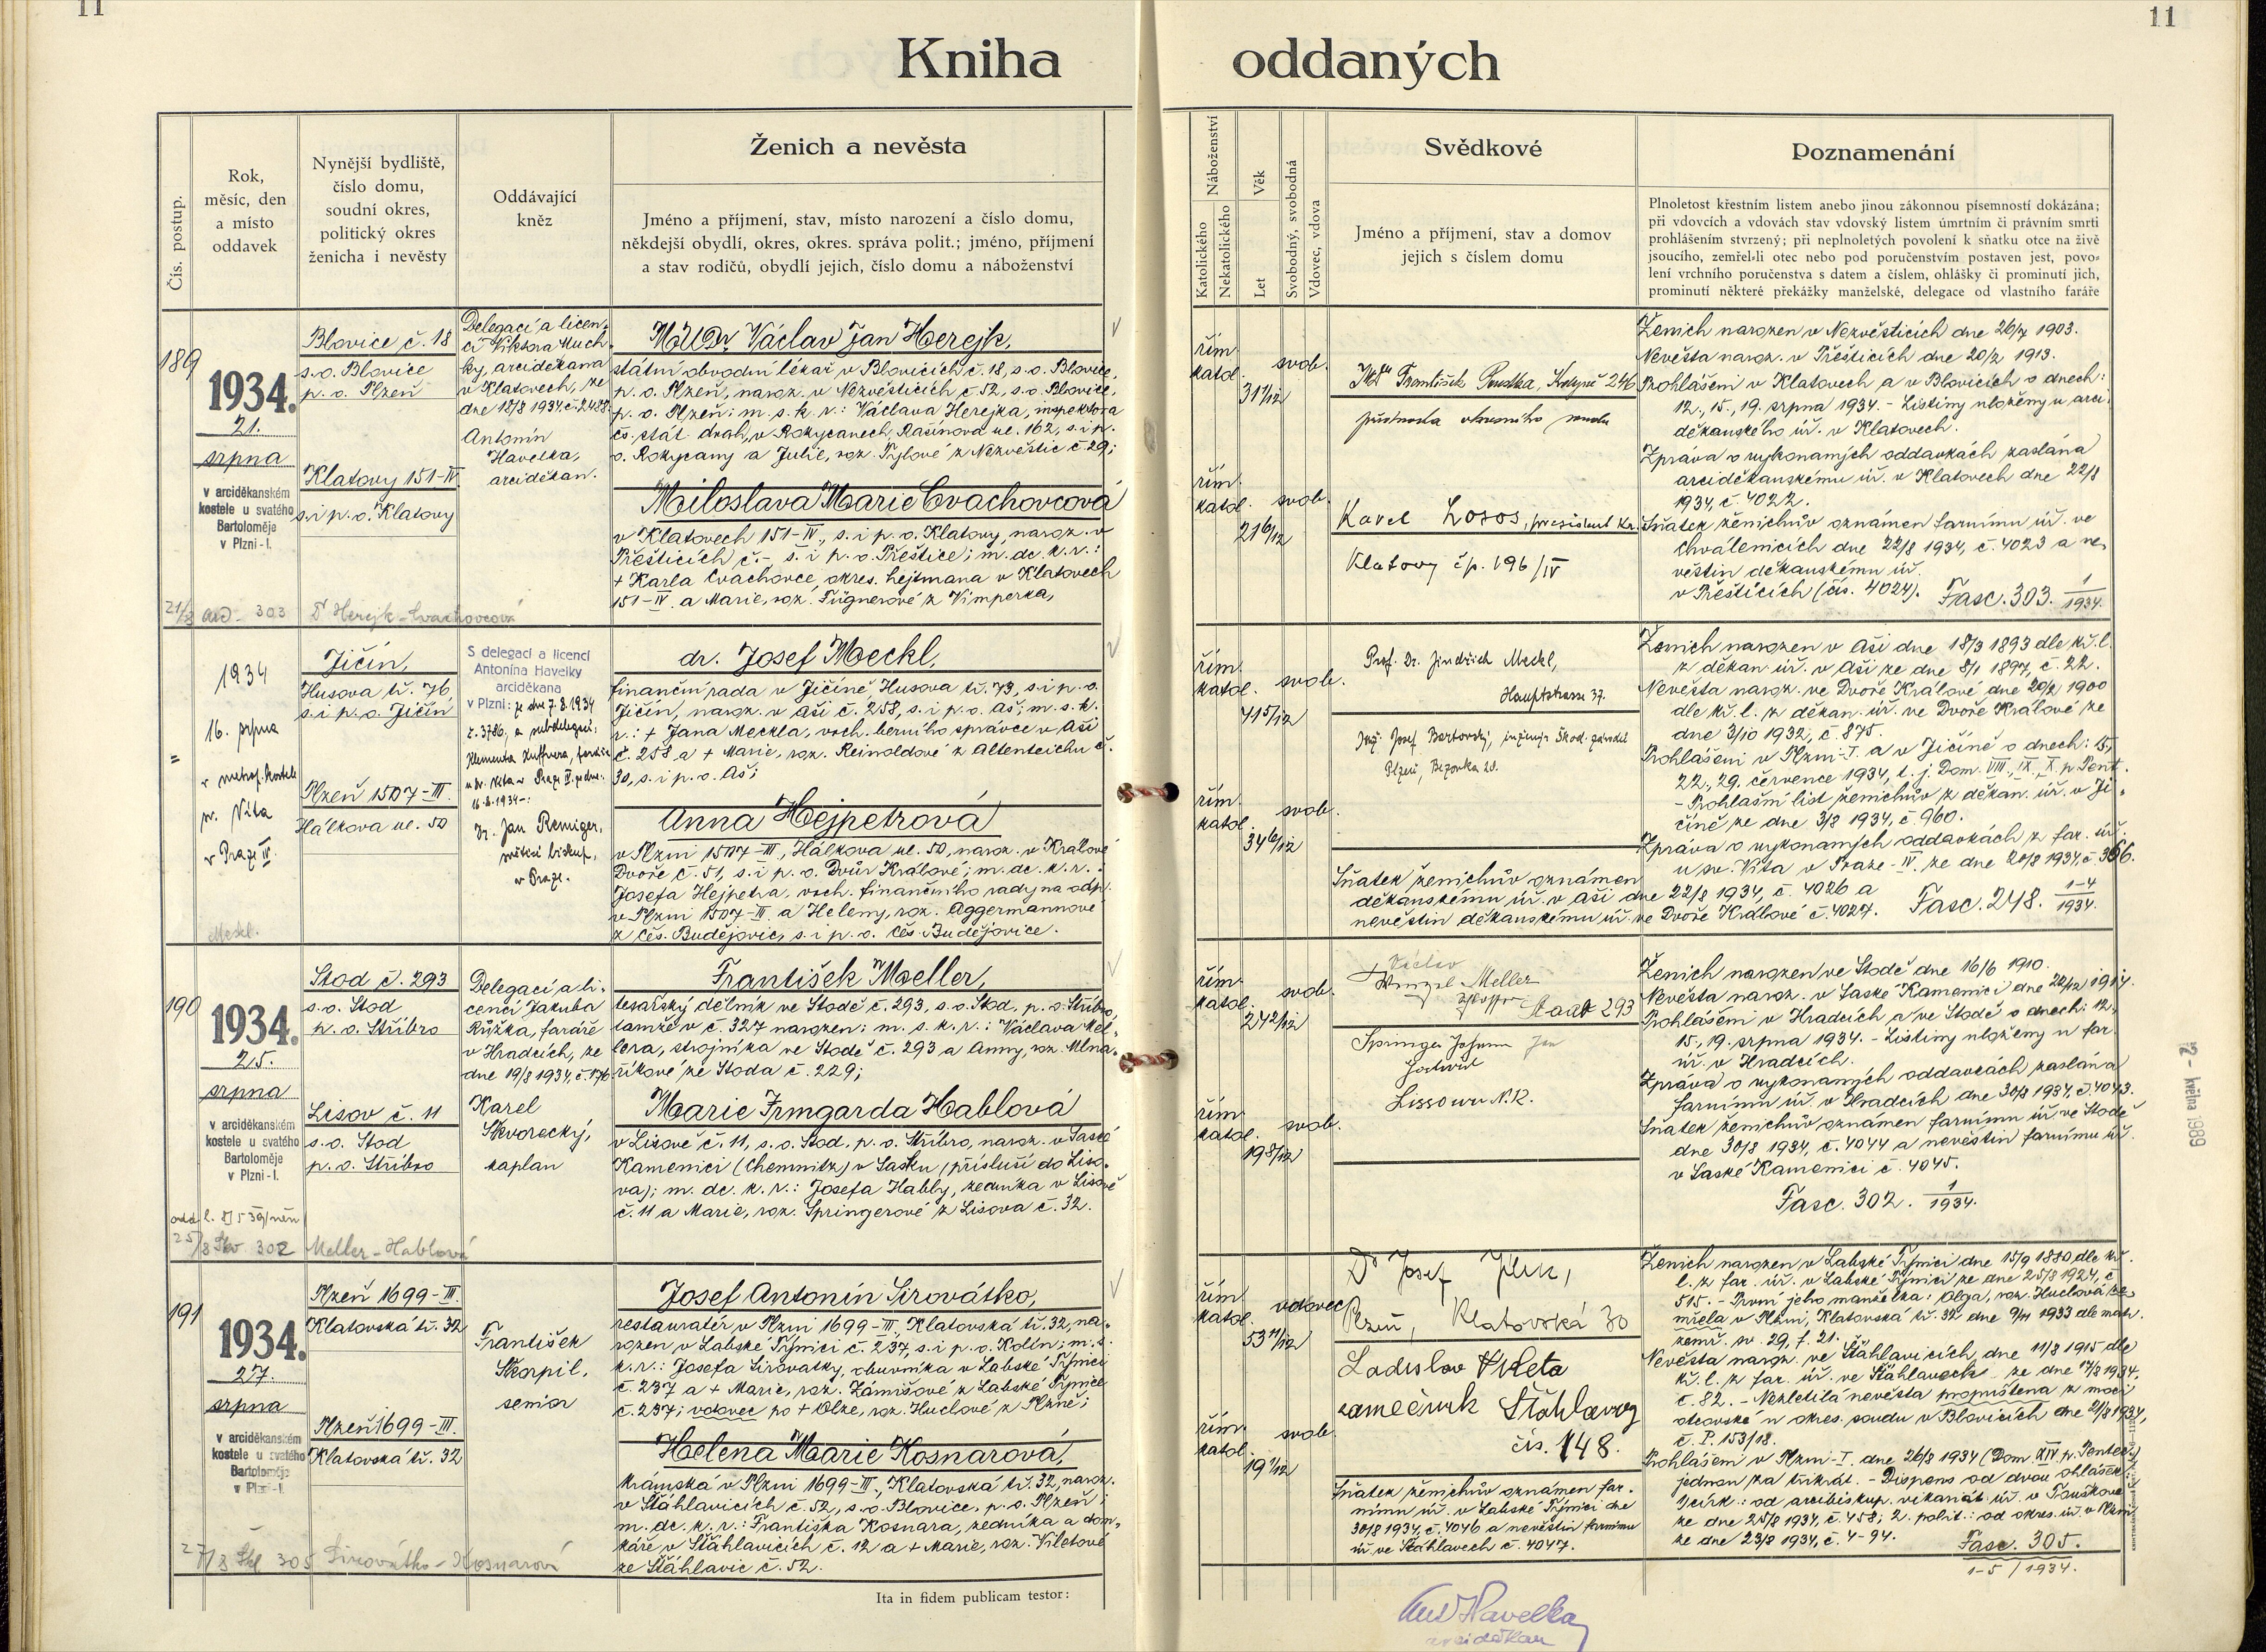 11
11
Kniha oddaných
Čís. postup.
Rok,
měsíc, den
a místo
oddavek
Nynější bydliště,
číslo domu,
soudní okres,
politický okres
ženicha i nevěsty
Oddávající
kněz
Ženich a nevěsta
Jméno a příjmení, stav, místo narození a číslo domu,
někdejší obydlí, okres, okres. správa polit.; jméno, příjmení
a stav rodičů, obydlí jejich, číslo domu a náboženství
Náboženství
Katolického
Nekatolického
Věk
Let
Svobodný, svobodná
Vdovec, vdova
Svědkové
Jméno a příjmení, stav a domov
jejich s číslem domu
Poznamenání
Plnoletost křestním listem anebo jinou zákonnou písemností dokázána;
při vdovcích a vdovách stav vdovský listem úmrtním či právním smrti
prohlášením stvrzený; při neplnoletých povolení k sňatku otce na živě
jsoucího, zemřel-li otec nebo pod poručenstvím postaven jest, povo-
lení vrchního poručenstva s datem a číslem, ohlášky či prominutí jich,
prominutí některé překážky manželské, delegace od vlastního faráře
189
1934.
21.
srpna
v arciděkanském
kostele u svatého
Bartoloměje
v Plzni-I.
Blovice č. 18
s. o. Blovice
p. o. Plzeň
Klatovy 151-IV.
s. i p. o. Klatovy
Delegací a licen-
cí Viktora Much-
ky, arciděkana
v Klatovech, ze
dne 18/8 1934 č. 2488.
Antonín
Havelka,
arciděkan.
MUDr Václav Jan Herejk,
státní obvodní lékař v Blovicích č. 18, s. o. Blovice,
p. o. Plzeň, naroz. v Nezvěsticích č. 52, s. o. Blovice,
p. o. Plzeň; m. s. k. r.: Václava Herejka, inspektora
čs. stát. drah, v Rokycanech, Rašínova ul. 162, s. i p.
o. Rokycany a Julie, roz. Tylové z Nezvěstic č. 29;
Miloslava Marie Cvachovcová
v Klatovech 151-IV., s. i p. o. Klatovy, naroz. v
Přešticích č. -, s. i p. o. Přeštice; m. dc. k. r.:
+ Karla Cvachovce, okres. hejtmana v Klatovech
151-IV. a Marie, roz. Fügnerové z Vimperka,
21/8 Ad. 303 Dr Herejk-Cvachovcová
řím.
katol.
svob.
31 1/12
řím.
katol.
svob.
21 6/12
František Poustka, 246
přednosta okresního soudu
Karel Losos, president kr.
Klatovy čp. 196/IV
Ženich narozen v Nezvěsticích dne 26/7 1903.
Nevěsta naroz. v Přešticích dne 20/2 1913.
Prohlášeni v Klatovech a v Blovicích o dnech:
12., 15., 19. srpna 1934. - Listiny uloženy u arci-
děkanského úř. v Klatovech.
Zpráva o vykonaných oddavkách zaslána
arciděkanskému úř. v Klatovech dne 22/8
1934, č. 4022.
Sňatek ženichův oznámen farnímu úř. ve
Chválenicích dne 22/8 1934, č. 4023 a ne-
věstin děkanskému úř.
v Přešticích (čís. 4024). Fasc. 303. 1/1934.
=
1934
16. srpna
v metrop. kostele
sv. Víta
v Praze IV.
Jičín,
Husova tř. 76,
s. i p. o. Jičín
Plzeň 1507-III.
Hálkova ul. 50
S delegací a licencí
Antonína Havelky
arciděkana
v Plzni: ze dne 7.8.1934
č. 3786, a subdelegací
16.8.1934-:
Dr. Jan Remiger,
světící biskup,
v Praze.
dr. Josef Meckl,
finanční rada v Jičíně, Husova tř. 73, s. i p. o.
Jičín, naroz. v Aši č. 258, s. i p. o. Aš; m. s. k.
r.: + Jana Meckla, vrch. berního správce v Aši
č. 258 a + Marie, roz. Reinoldové z Altenteichu č.
30, s. i p. o. Aš;
Anna Hejpetrová
v Plzni 1507-III., Hálkova ul. 50, naroz. v Králové
Dvoře č. 51, s. i p. o. Dvůr Králové; m. dc. k. r.:
Josefa Hejpetra, vrch. finančního rady na odp.
v Plzni 1507-III. a Heleny, roz. Aggermannové
z Čes. Budějovic, s. i p. o. Čes. Budějovice.
Meckl.
řím.
katol.
svob.
41 5/12
řím.
katol.
svob.
34 6/12
Prof. Dr. Jindřich Meckl,
Hauptstrasse 37.
Ing. Josef Bertovský, inženýr Škod. závodů
Plzeň, Bezovka 20.
Sňatek ženichův oznámen
děkanskému úř. v Aši dne 22/8 1934, č. 4026 a
nevěstin děkanskému úř. ve Dvoře Králové č. 4027.
Ženich narozen v Aši dne 18/3 1893 dle kř. l.
z děkan. úř. v Aši ze dne 8/1 1897, č. 22.
Nevěsta naroz. ve Dvoře Králové dne 20/2 1900
dle kř. l. z děkan. úř. ve Dvoře Králové ze
dne 3/10 1932, č. 875.
Prohlášeni v Plzni-I. a v Jičíně o dnech: 15.,
22., 29. července 1934, t. j. Dom. VIII., IX., X. p. Pent.
- Prohlašní list ženichův z děkan. úř. v Ji-
číně ze dne 3/8 1934, č. 960.
Zpráva o vykonaných oddavkách z far. úř.
u sv. Víta v Praze-IV. ze dne 20/8 1934, č. 366.
Fasc. 248. 1-4/1934.
190
1934.
25.
srpna
v arciděkanském
kostele u svatého
Bartoloměje
v Plzni-I.
Stod č. 293
s. o. Stod
p. o. Stříbro
Lisov č. 11
s. o. Stod
p. o. Stříbro
Delegací a li-
cencí Jakuba
Růžka, faráře
v Hradcích, ze
dne 19/8 1934, č. 176
Karel
Škvorecký,
kaplan
František Moeller,
tesařský dělník ve Stodě č. 293, s. o. Stod, p. o. Stříbro,
tamže v č. 327 narozen; m. s. k. r.: Václava Mel-
lera, strojníka ve Stodě č. 293 a Anny, roz. Mlna-
říkové ze Stoda č. 229;
Marie Irmgarda Hablová
v Lisově č. 11, s. o. Stod, p. o. Stříbro, naroz. v Saské
Kamenici (Chemnitz) v Sasku (přísluší do Liso-
va); m. dc. k. r.: Josefa Habby, zedníka v Lisově
č. 11 a Marie, roz. Springerové z Lisova č. 32.
25/8 Škv 302 Meller-Hablová
řím.
katol.
svob.
24 2/12
řím.
katol.
svob.
19 8/12
Václav
Wenzel Meller
Staab 293
Springer Johann Jan
Lissowa N. 12.
Ženich narozen ve Stodě dne 16/6 1910.
Nevěsta naroz. v Saské Kamenici dne 22/12 1914.
Prohlášeni v Hradcích a ve Stodě o dnech: 12.,
15., 19. srpna 1934. - Listiny uloženy u far.
úř. v Hradcích.
Zpráva o vykonaných oddavkách zaslána
farnímu úř. v Hradcích dne 30/8 1934, č. 4043.
Sňatek ženichův oznámen farnímu úř. ve Stodě
dne 30/8 1934, č. 4044 a nevěstin farnímu úř.
v Saské Kamenici č. 4045.
Fasc. 302. 1/1934.
2 - května 1989
191
1934.
27.
srpna
v arciděkanském
kostele u svatého
Bartoloměje
v Plzni-I.
Plzeň 1699-III.
Klatovská tř. 32
Plzeň 1699-III.
Klatovská tř. 32
František
Škorpil,
senior
Josef Antonín Sirovátko,
restauratér v Plzni 1699-III, Klatovská tř. 32, na-
rozen v Labské Týnici č. 237, s. i p. o. Kolín; m. s.
k. r.: Josefa Sirovátky, obuvníka v Labské Týnici
č. 237 a + Marie, roz. Zámišové z Labské Týnice
č. 237; vdovec po + Olze, roz. Huclové z Plzně;
Helena Marie Kosnarová,
krámská v Plzni 1699-III., Klatovská tř. 32, naroz.
v Šťáhlavicích č. 52, s. o. Blovice, p. o. Plzeň;
m. dc. k. r.: Františka Kosnara, zedníka a dom-
káře v Šťáhlavicích č. 12 a + Marie, roz. Viletové
ze Šťáhlavic č. 52.
27/8 Škl 305 Sirovátko-Kosnarová
řím.
katol.
vdovec
53 11/12
řím.
katol.
svob.
19 1/12
Dr Josef
Plzeň, Klatovská 30
Ladislav Vileta
zámečník Šťáhlavy
čís. 148.
Sňatek ženichův oznámen far-
nímu úř. v Labské Týnici dne
30/8 1934, č. 4046 a nevěstin farnímu
úř. ve Šťáhlavech č. 4047.
Ženich narozen v Labské Týnici dne 15/9 1880 dle kř.
l. z far. úř. v Labské Týnici ze dne 25/8 1924, č.
515. - První jeho manželka: Olga, roz. Huclová ze-
mřela v Plzni, Klatovská tř. 32 dne 9/11 1933 dle matr.
zemř. sv. 29, f. 21.
Nevěsta naroz. ve Šťáhlavicích, dne 11/8 1915 dle
kř. l. z far. úř. ve Šťáhlavech ze dne 17/8 1934,
č. 82. - Nezletilá nevěsta propuštěna z moci
otcovské u okres. soudu v Blovicích dne 21/8 1934,
č. P. 153/18.
Prohlášeni v Plzni-I. dne 26/8 1934 (Dom. XIV. p. Pentec.)
jednou za třikrát. - Dispens od dvou ohlášek:
1. círk.: od arcibiskup. vikariát. úř. v Touškově
ze dne 25/8 1934, č. 458; 2. polit.: od okres. úř. v Plzni
ze dne 23/8 1934, č. 4-94. Fasc. 305.
1-5/1934.
Ita in fidem publicam testor:
Ant. Havelka
arciděkan